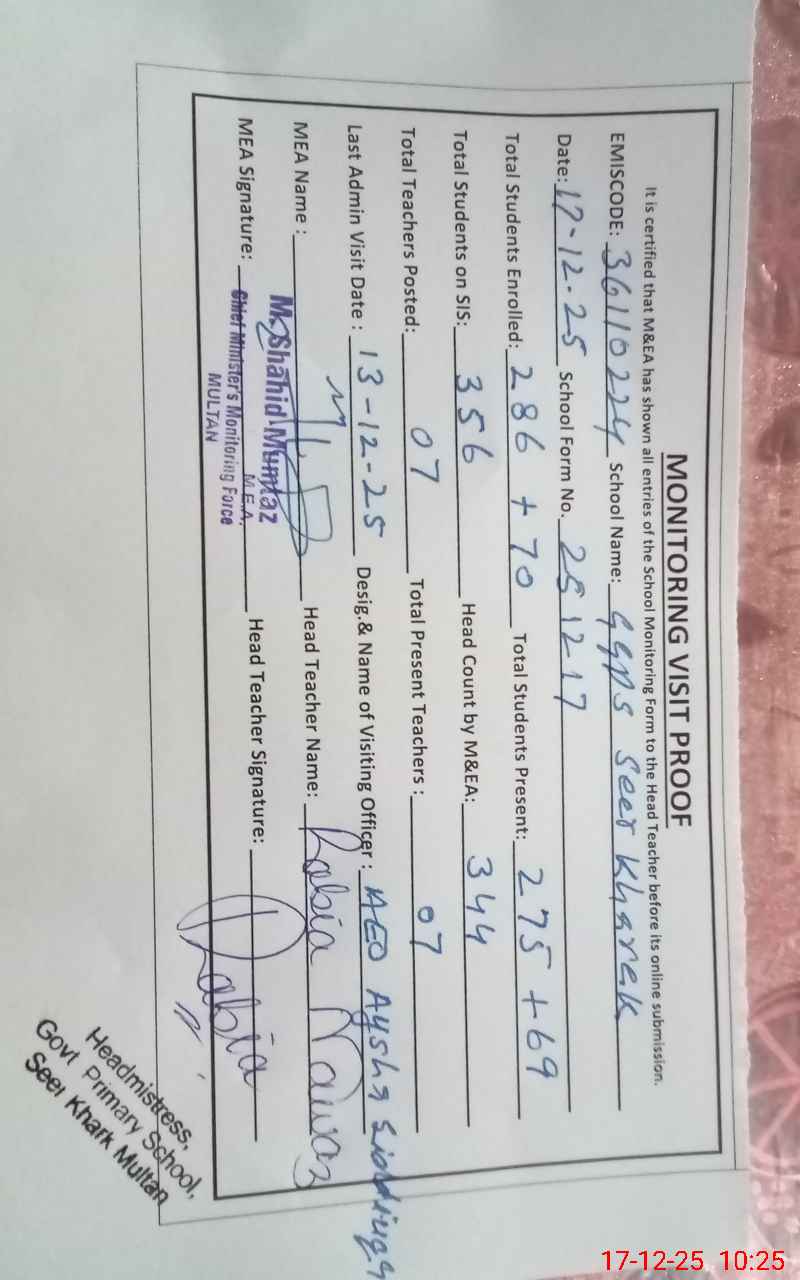 MONITORING VISIT PROOF
It is certified that M&EA has shown all entries of the School Monitoring Form to the Head Teacher before its online submission.
EMISCODE: 36110224 School Name: GGPS Seer Kharek
Date: 17-12-25 School Form No. 251217
Total Students Enrolled: 286 + 70 Total Students Present: 275 + 69
Total Students on SIS: 356 Head Count by M&EA: 344
Total Teachers Posted: 07 Total Present Teachers : 07
Last Admin Visit Date : 13-12-25 Desig.& Name of Visiting Officer : AEO Aysha
MEA Name : Head Teacher Name: Rabia Nawaz
M. Shahid Mumtaz
MEA Signature: Head Teacher Signature: Rabia
M.E.A,
Chief Minister's Monitoring Force
MULTAN
Headmistress,
Govt Primary School,
Seer Khark Multan
17-12-25 10:25